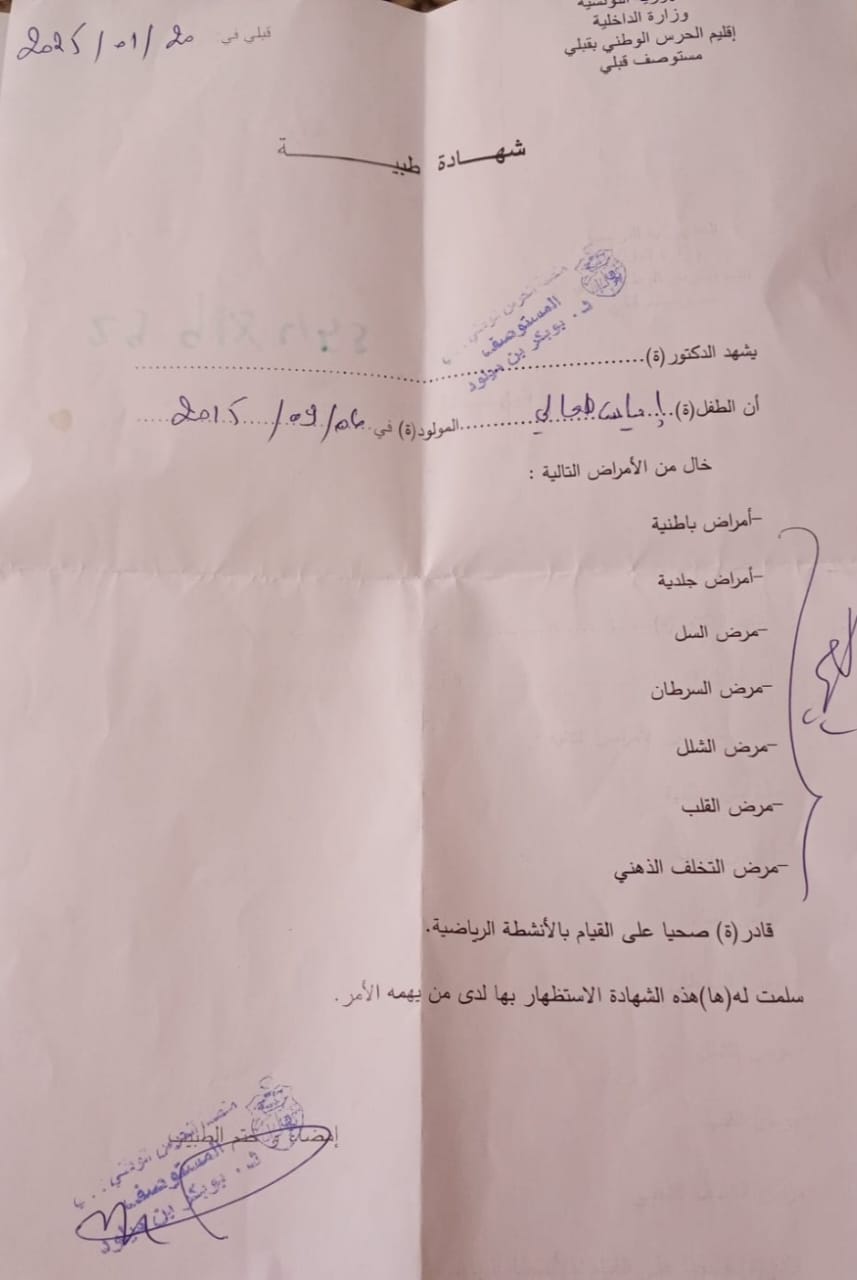 وزارة الداخلية
إقليم الحرس الوطني بقبلي
مستوصف قبلي
قبلي في 20 / 01 / 2025
شهادة طبية
المستوصف
يشهد الدكتور(ة)
أن الطفل(ة) إياس المولود(ة) في 06/ 09/ 2015
خال من الأمراض التالية :
-أمراض باطنية
-أمراض جلدية
-مرض السل
-مرض السرطان
-مرض الشلل
-مرض القلب
-مرض التخلف الذهني
قادر(ة) صحيا على القيام بالأنشطة الرياضية.
سلمت له(ها)هذه الشهادة الاستظهار بها لدى من يهمه الأمر.
إمضاء و ختم الطبيب
المستوصف